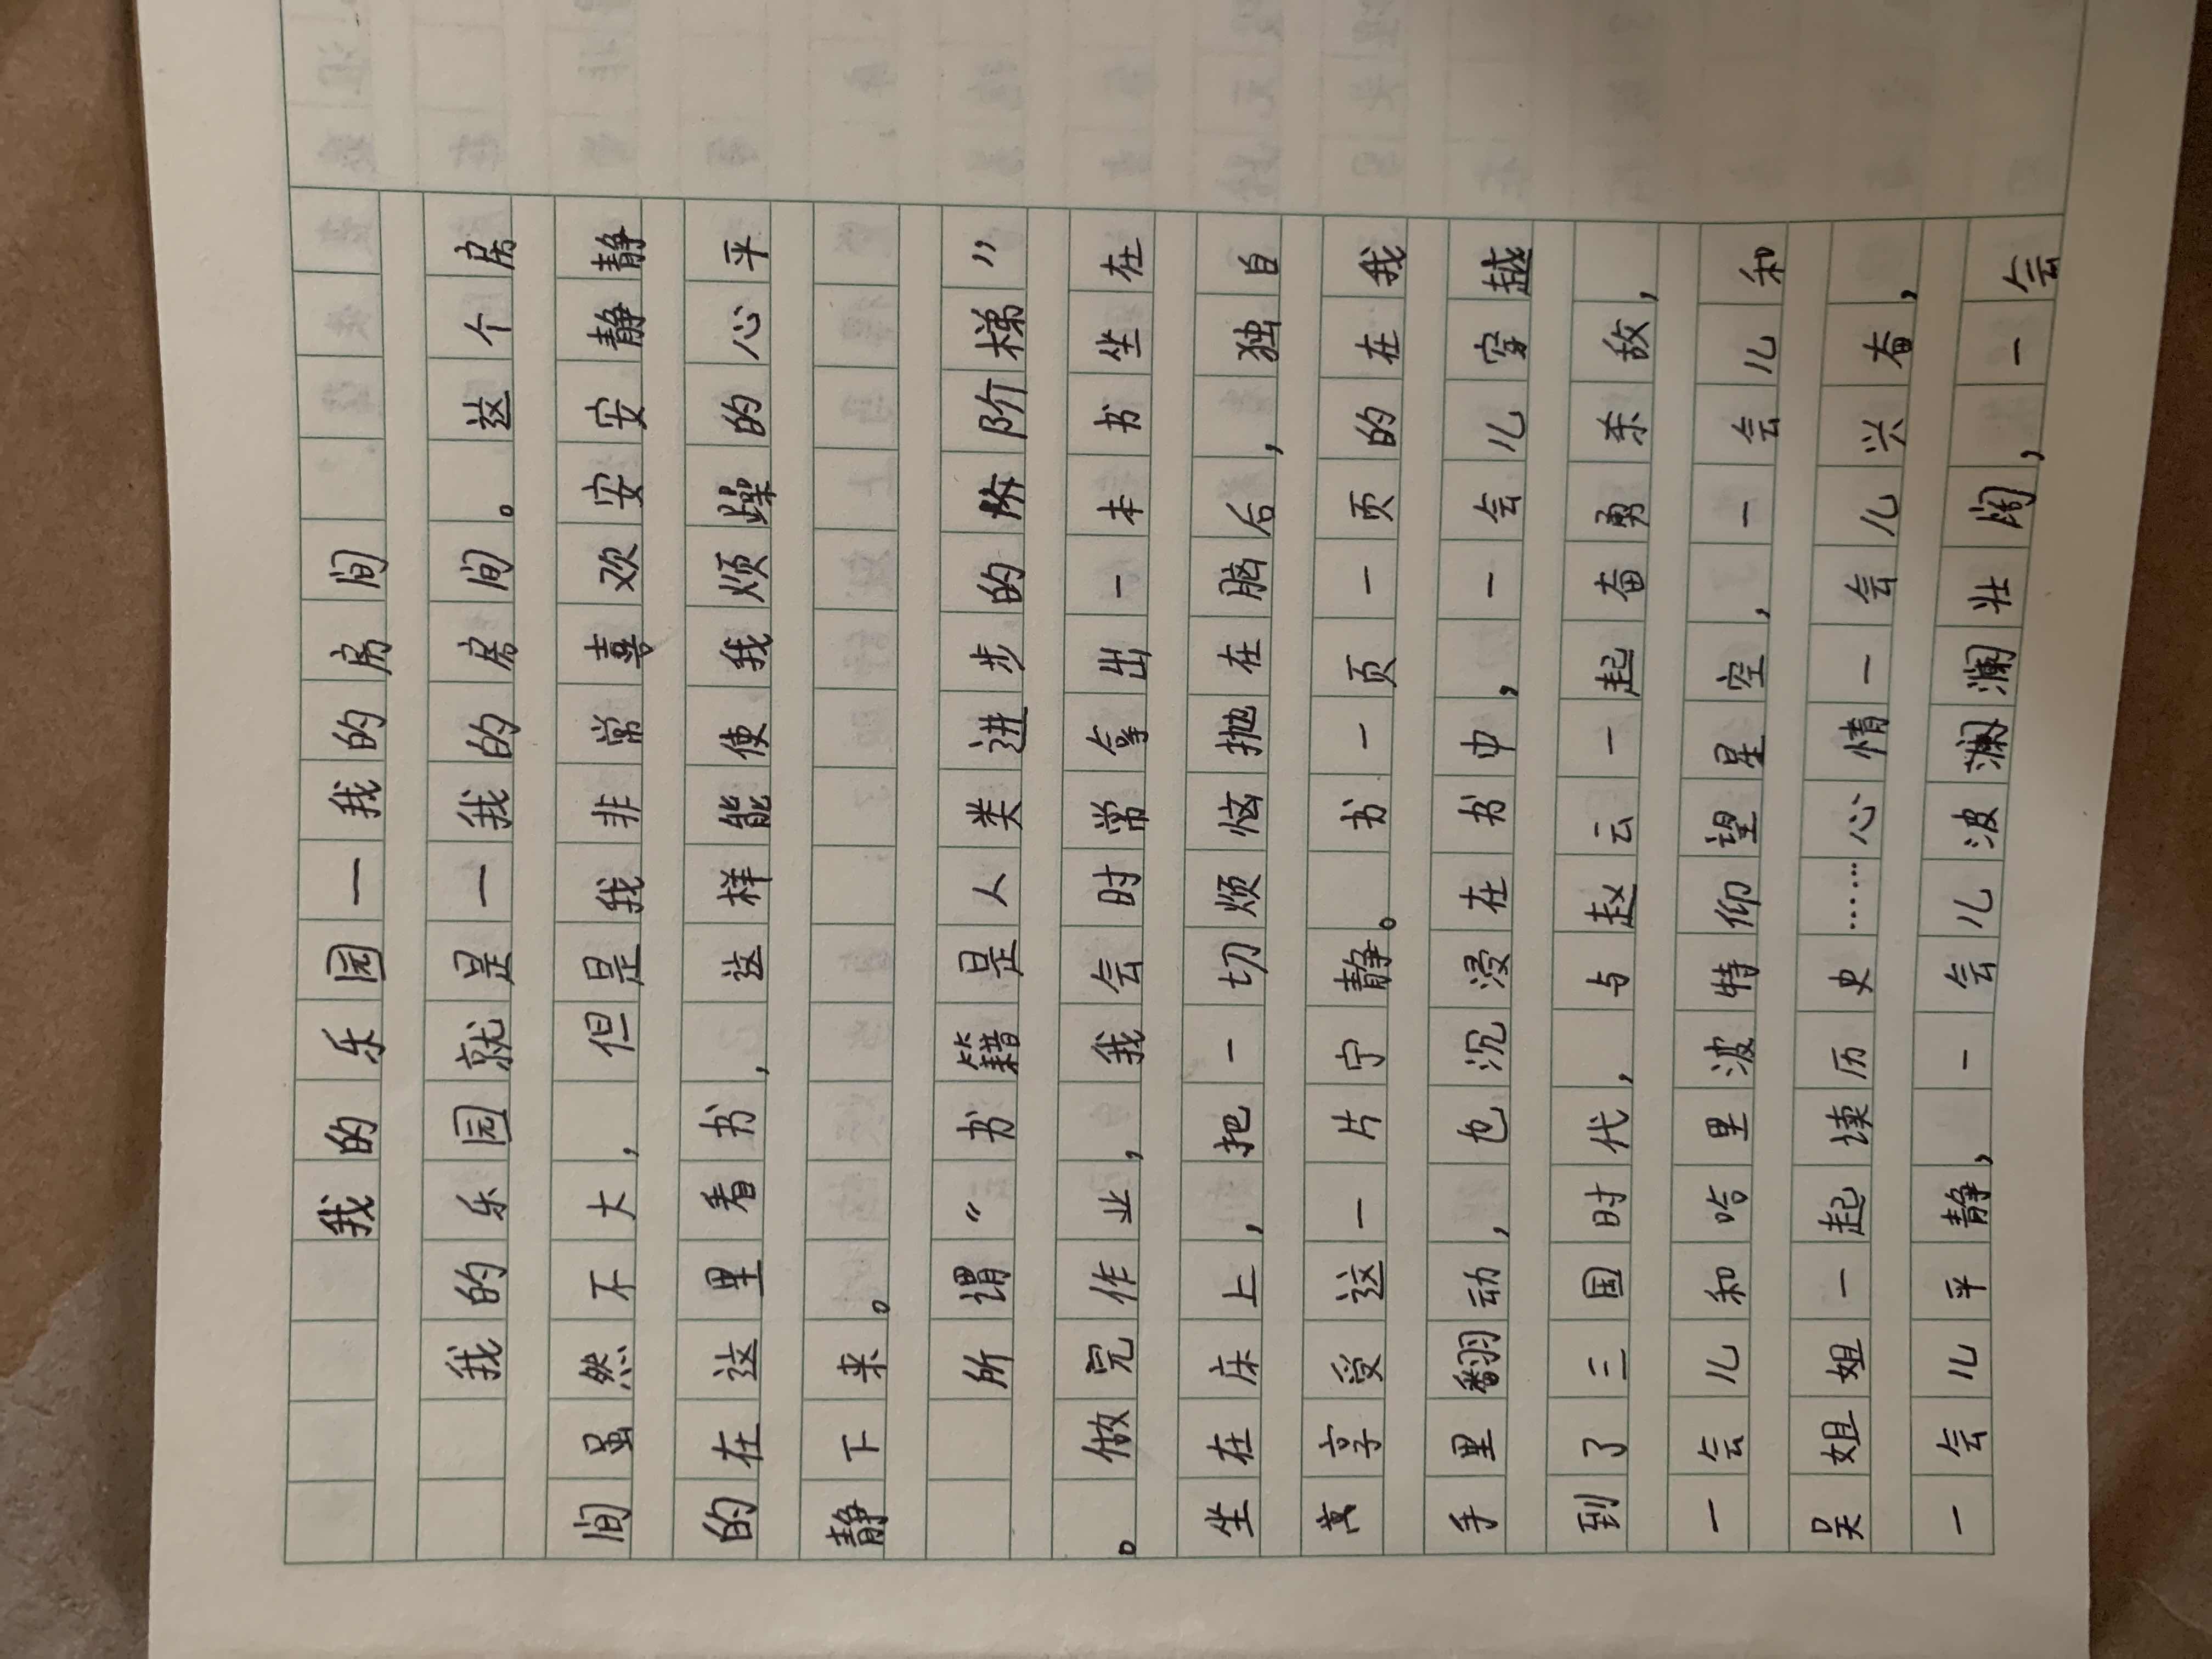 我的乐园一我的房间
我的乐园就是一我的房间。这个房
间虽然不大，但是我非常喜欢安安静静
的在这里看书，这样能使我烦躁的心平
静下来。
所谓“书籍是人类进步的阶梯”
。做完作业，我会时常拿出一本书坐在
坐在床上，把一切烦恼抛在脑后，独自
享受这一片宁静。书一页一页的在我
手里翻动，也沉浸在书中，一会儿穿越
到了三国时代，与赵云一起奋勇杀敌，
一会儿和哈里波特仰望星空，一会儿和
吴姐姐一起读历史……心情一会儿兴奋，
一会儿平静，一会儿波澜壮阔，一会